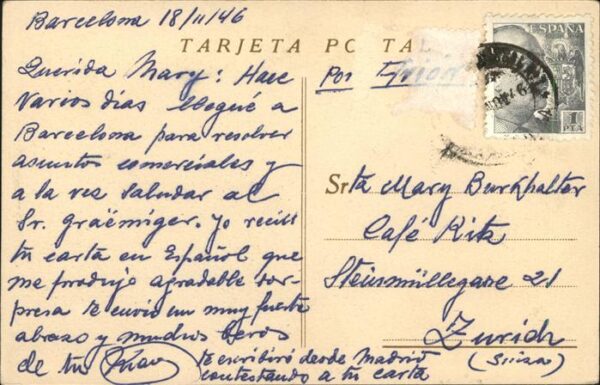 Barcelona 18/11/46
TARJETA POSTAL
Querida Mary: Hace
varios dias llegué a
Barcelona para resolver
asuntos comerciales y
a la vez saludar al
Sr. Graëmiger. Yo recibi
tu carta en Español que
me produjo agradable sor-
presa te envio un muy fuerte
abrazo y muchos besos
de tu
te escribiré desde Madrid
contestando a tu carta
Por Avión
ESPAÑA
1
PTA
Srta Mary Burkhalter
Café Ritz
Steinmüllegasse 21
Zurich
(Suiza)